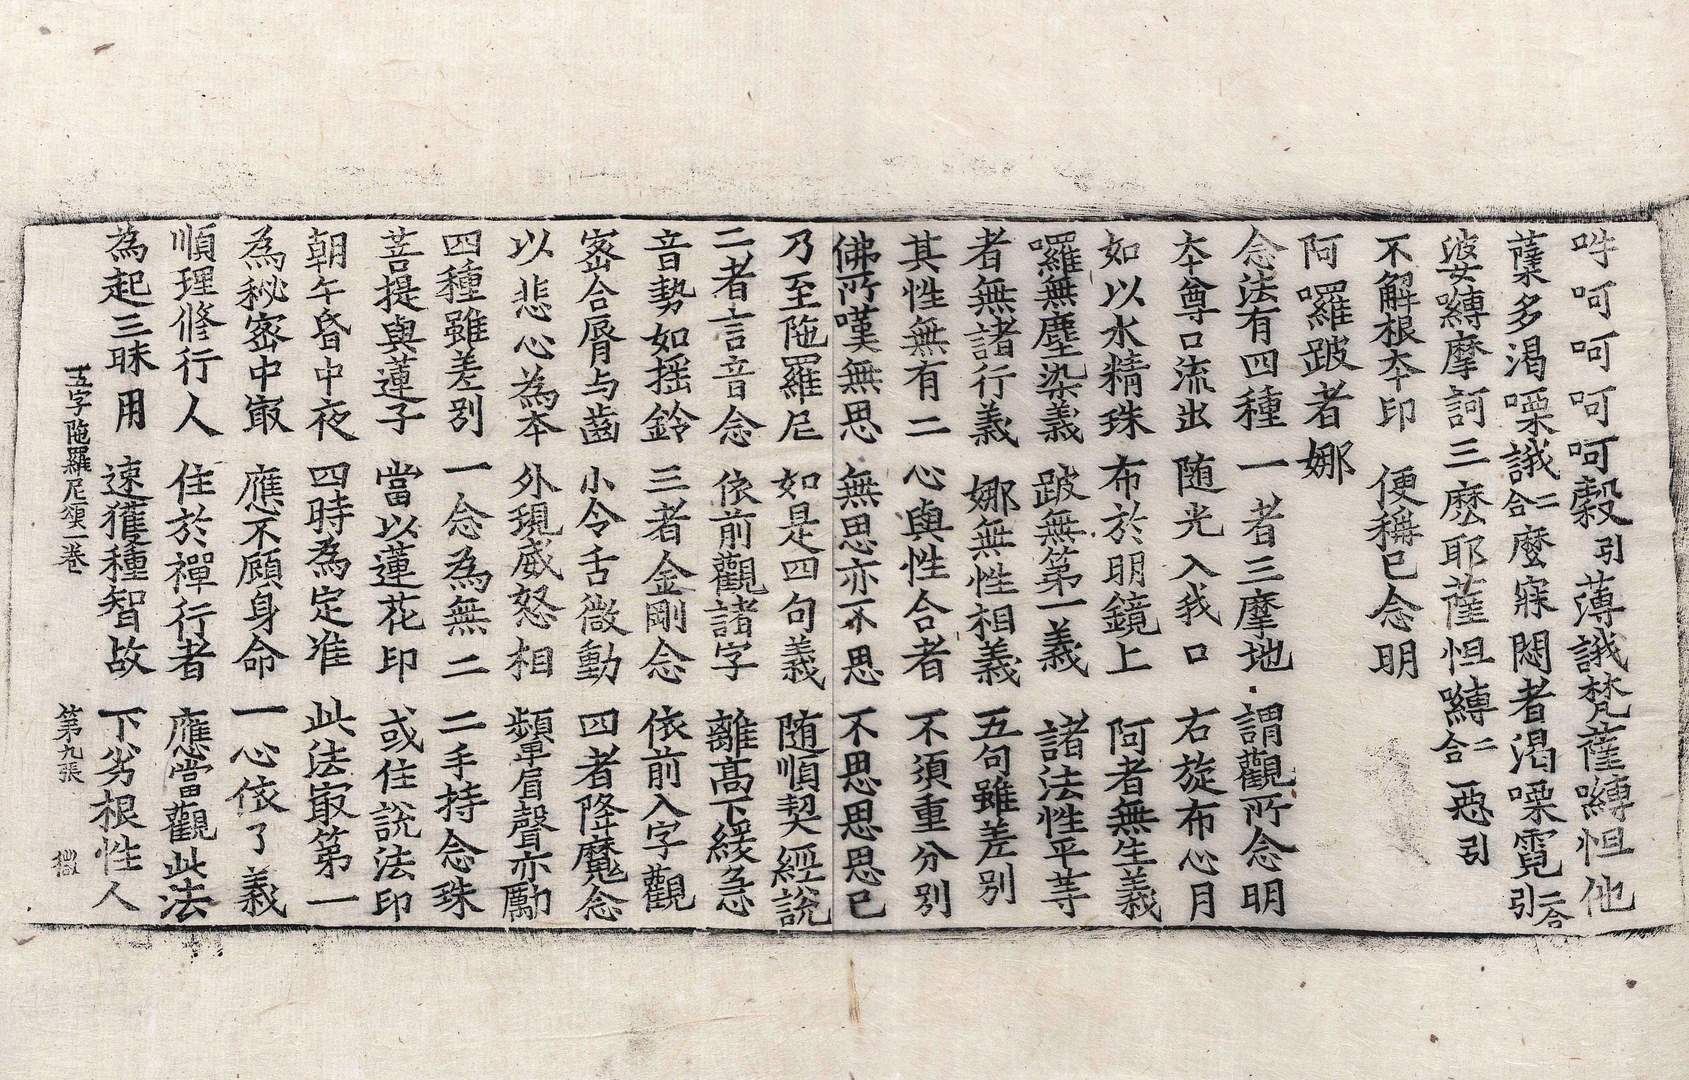 吽呵呵呵呵呵縠引薄誐梵薩嚩怛他
蘖多渴㗚誐二合麼寐悶者渴㗚霓二合引
婆嚩摩訶三麽耶薩怛嚩二合惡引
不解根本印　便稱已念明
阿囉跛者娜
念法有四種　一者三摩地　謂觀所念明
本尊口流出　随光入我口　右旋布心月
如以水精珠　布於明鏡上　阿者無生義
囉無塵染義　跛無第一義　諸法性平等
者無諸行義　娜無性相義　五句雖差別
其性無有二　心與性合者　不須重分別
佛所嘆無思　無思亦不思　不思思思已
乃至陁羅尼　如是四句義　随順契經說
二者言音念　依前觀諸字　離高下緩急
音勢如搖鈴　三者金剛念　依前入字觀
密合脣与齒　小令舌微動　四者降魔念
以悲心為本　外現威怒相　顰眉聲亦勵
四種雖差別　一念為無二　二手持念珠
菩提與蓮子　當以蓮花印　或住說法印
朝午昏中夜　四時為定准　此法㝡第一
為秘密中㝡　應不顧身命　一心依了義
順理修行人　住於禪行者　應當觀此法
為起三昧用　速獲種智故　下劣根性人
五字陁羅尼頌一卷　第九張